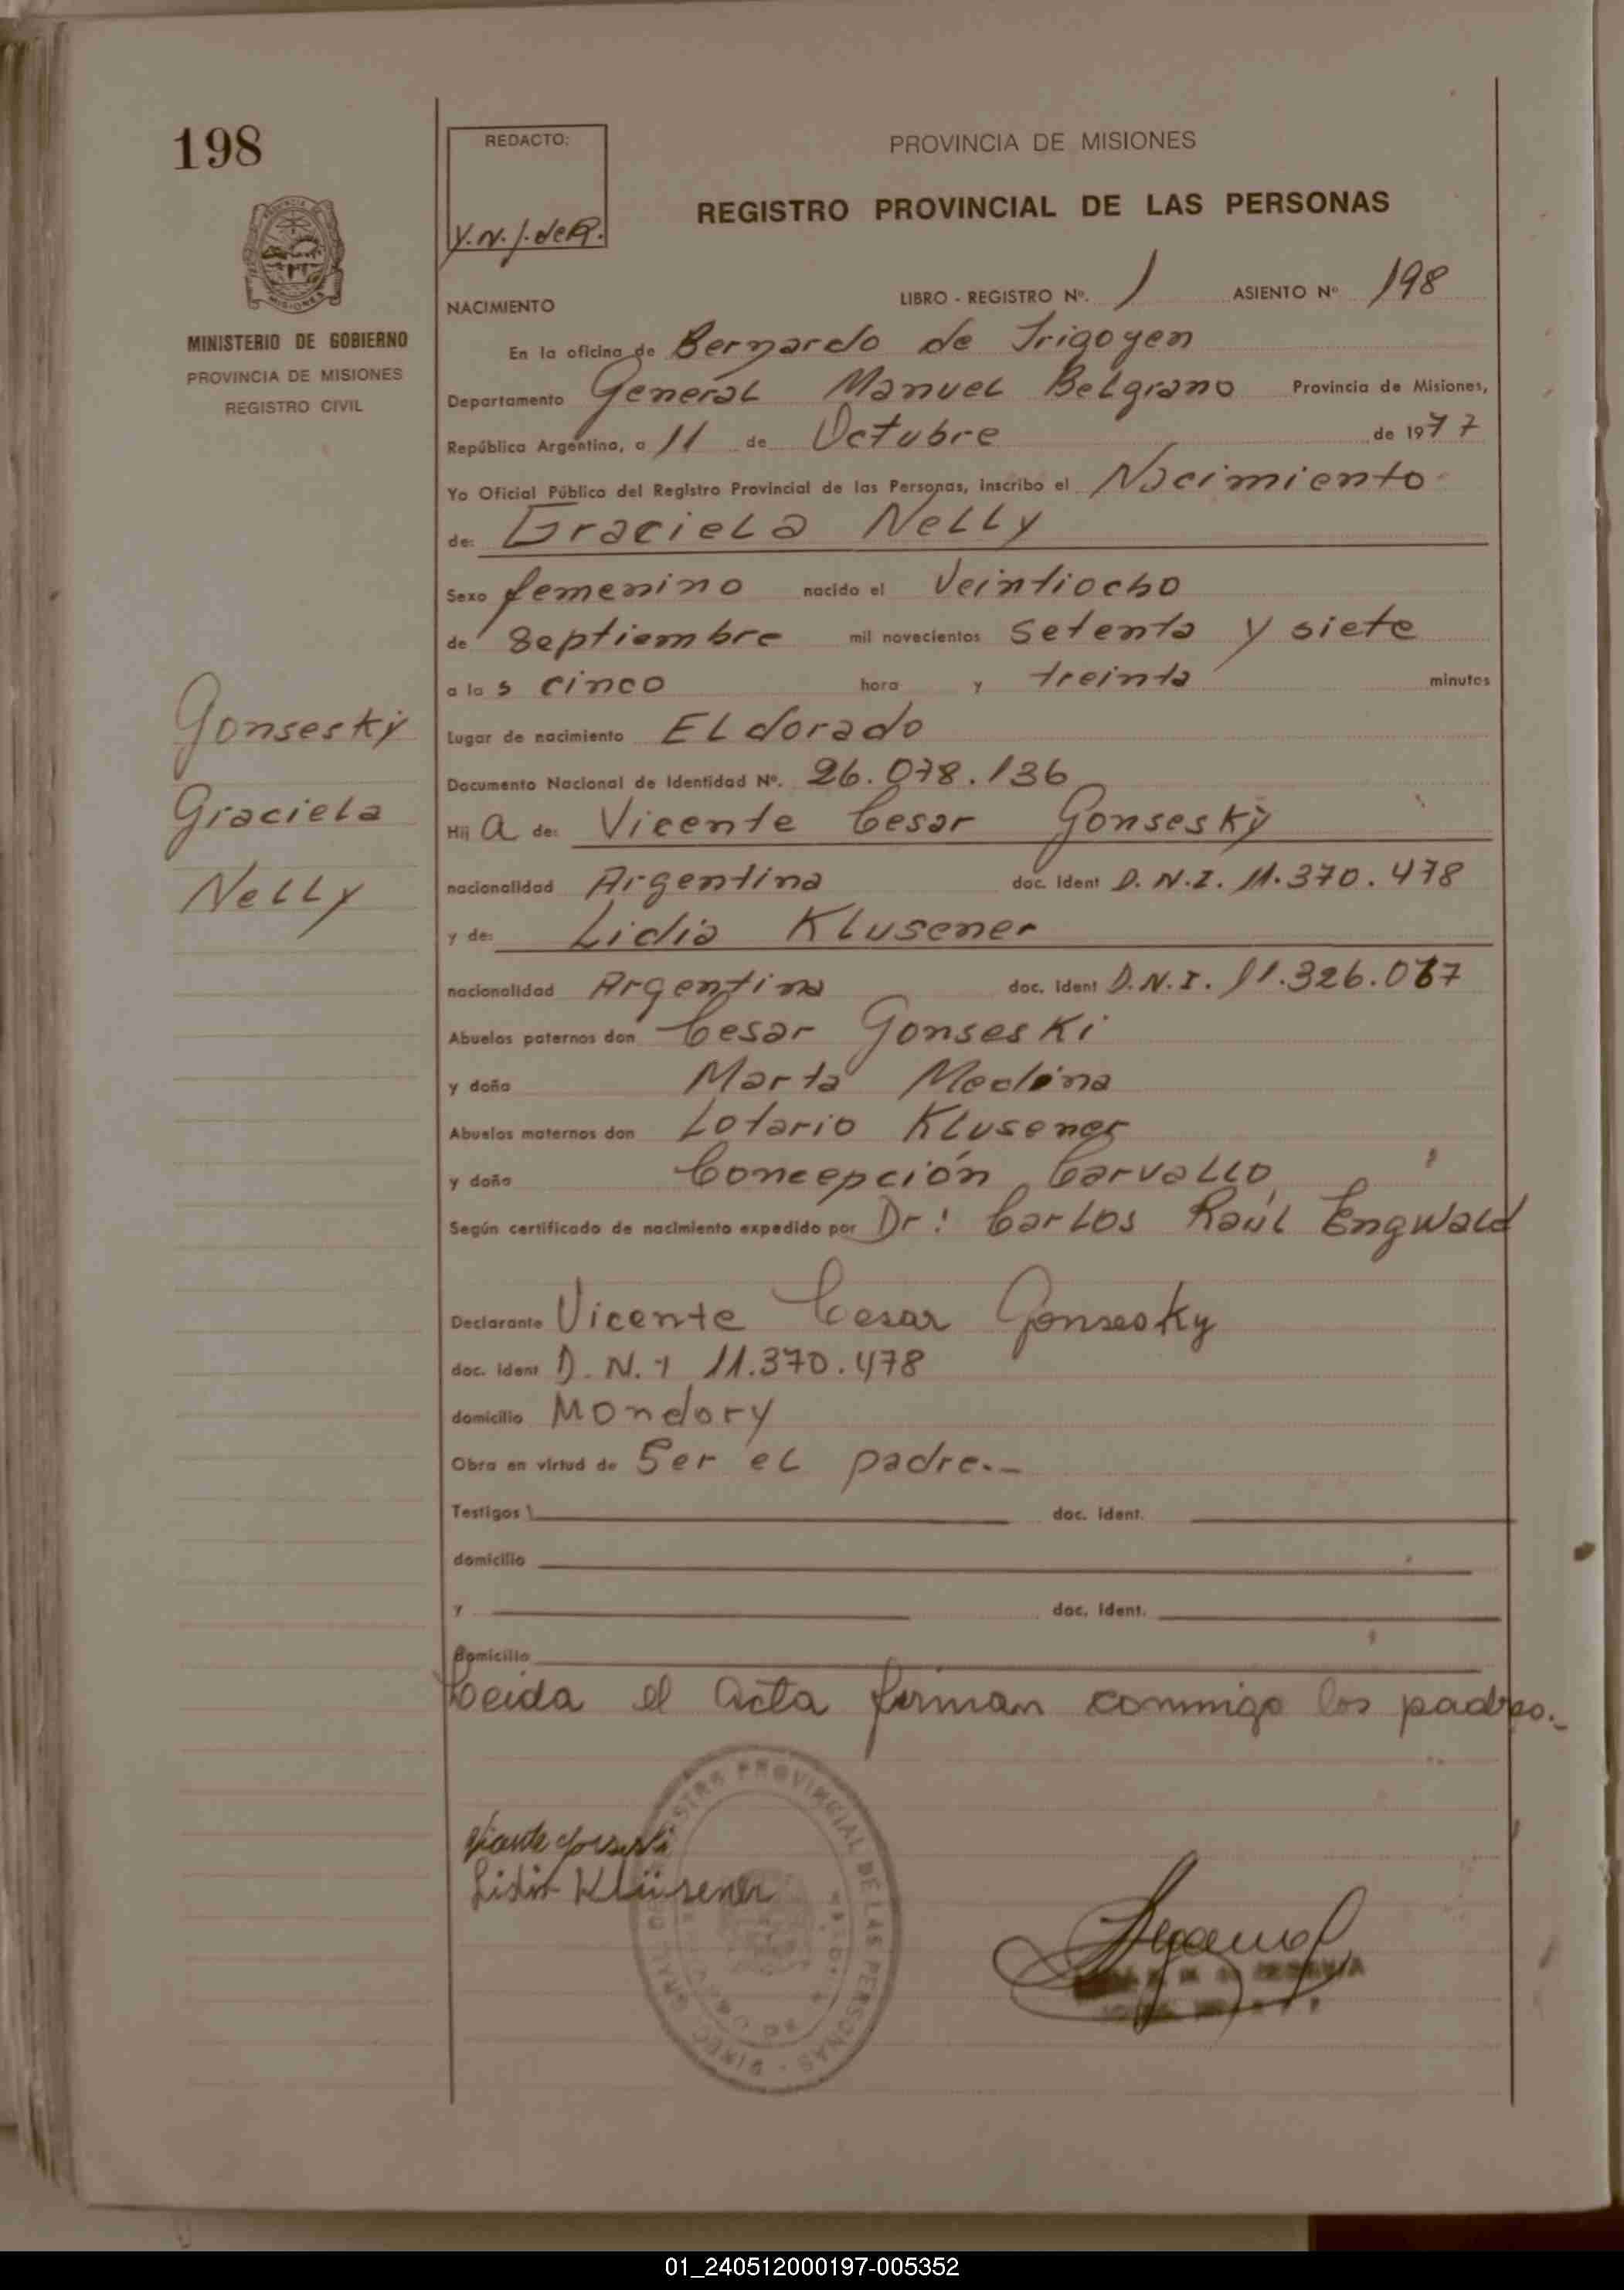 198
REDACTO:
Y.N.J. de R.
PROVINCIA DE MISIONES
REGISTRO PROVINCIAL DE LAS PERSONAS
PROVINCIA DE
MISIONES
MINISTERIO DE GOBIERNO
PROVINCIA DE MISIONES
REGISTRO CIVIL
NACIMIENTO LIBRO - REGISTRO Nº. 1 ASIENTO Nº 198
En la oficina de Bernardo de Irigoyen
Departamento General Manuel Belgrano Provincia de Misiones,
República Argentina, a 11 de Octubre de 1977
Yo Oficial Público del Registro Provincial de las Personas, inscribo el Nacimiento
de: Graciela Nelly
Sexo femenino nacido el Veintiocho
de Septiembre mil novecientos setenta y siete
a las cinco hora y treinta minutos
Lugar de nacimiento Eldorado
Documento Nacional de Identidad Nº. 26.078.136
Hija de: Vicente Cesar Gonsesky
nacionalidad Argentina doc. Ident D.N.I. 11.370.478
y de: Lidia Klusener
nacionalidad Argentina doc. Ident D.N.I. 11.326.067
Abuelos paternos don Cesar Gonseski
y doña Marta Medina
Abuelos maternos don Lotario Klusener
y doña Concepción Carvallo
Según certificado de nacimiento expedido por Dr: Carlos Raúl Engwald
Declarante Vicente Cesar Gonsesky
doc. Ident D.N.I 11.370.478
domicilio Mondory
Obra en virtud de Ser el padre.-
Testigos doc. Ident.
domicilio
y doc. Ident.
Domicilio
Leida el Acta firman conmigo los padres.-
Gonsesky
Graciela
Nelly
Lidia Klüsener
REGISTRO PROVINCIAL DE LAS PERSONAS
01_240512000197-005352